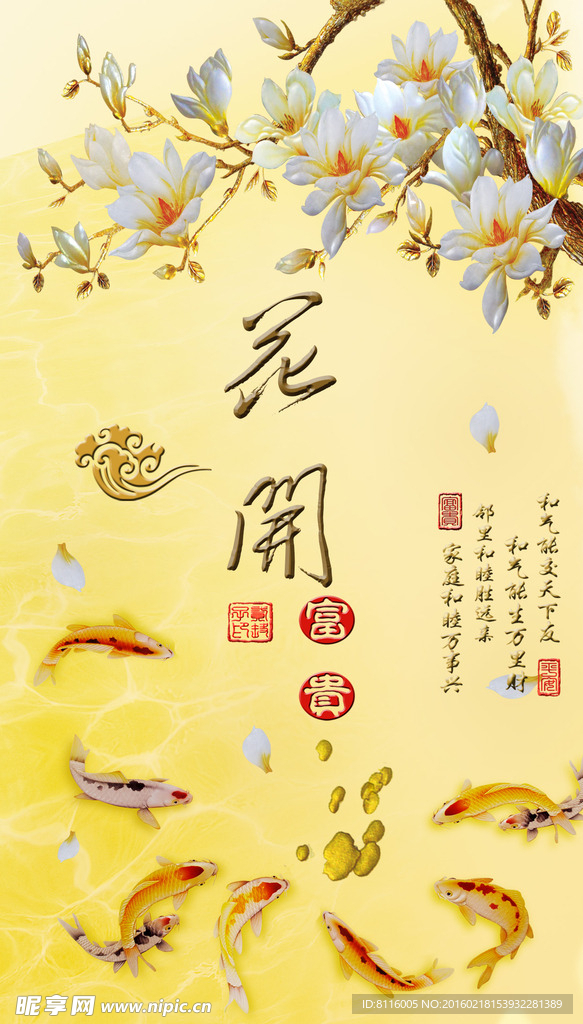 花
開
富
貴
富貴
和气能交天下友
和气能生万里财
邻里和睦胜远亲
家庭和睦万事兴
平安
昵享网 www.nipic.cn
ID:8116005 NO:20160218153932281389